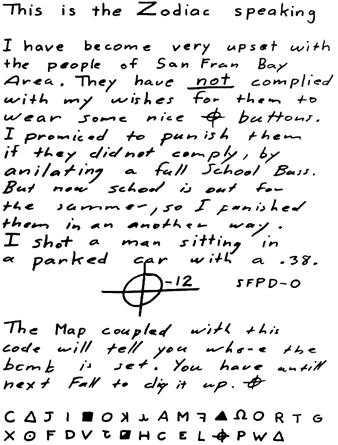 This is the Zodiac speaking
I have become very upset with
the people of San Fran Bay
Area. They have not complied
with my wishes for them to
wear some nice ⌖ buttons.
I promiced to punish them
if they did not comply, by
anilating a full School Buss.
But now school is out for
the summer, so I punished
them in an another way.
I shot a man sitting in
a parked car with a .38.
⌖-12 SFPD-0
The Map coupled with this
code will tell you who-e the
bomb is set. You have untill
next Fall to dig it up. ⌖
C Δ J I ■ O ꓘ ⅄ A M ꟻ ▲ Ω O R T G
X ⊙ F D V Ʇ ◪ H C E L ⌖ P W Δ